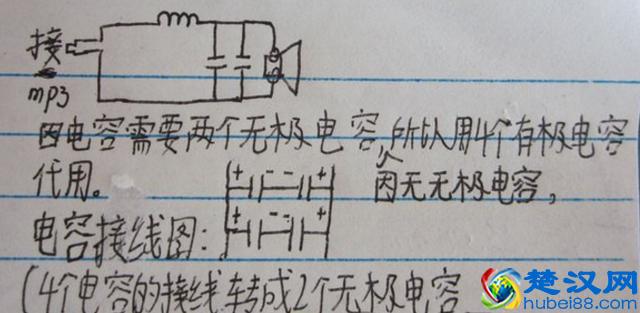 接
mp3
因电容需要两个无极电容,所以用4个有极电容
代用。
因无无极电容,
+ - - +
电容接线图:
+ - - +
(4个电容的接线转成2个无极电容
楚汉网
hubei88.com